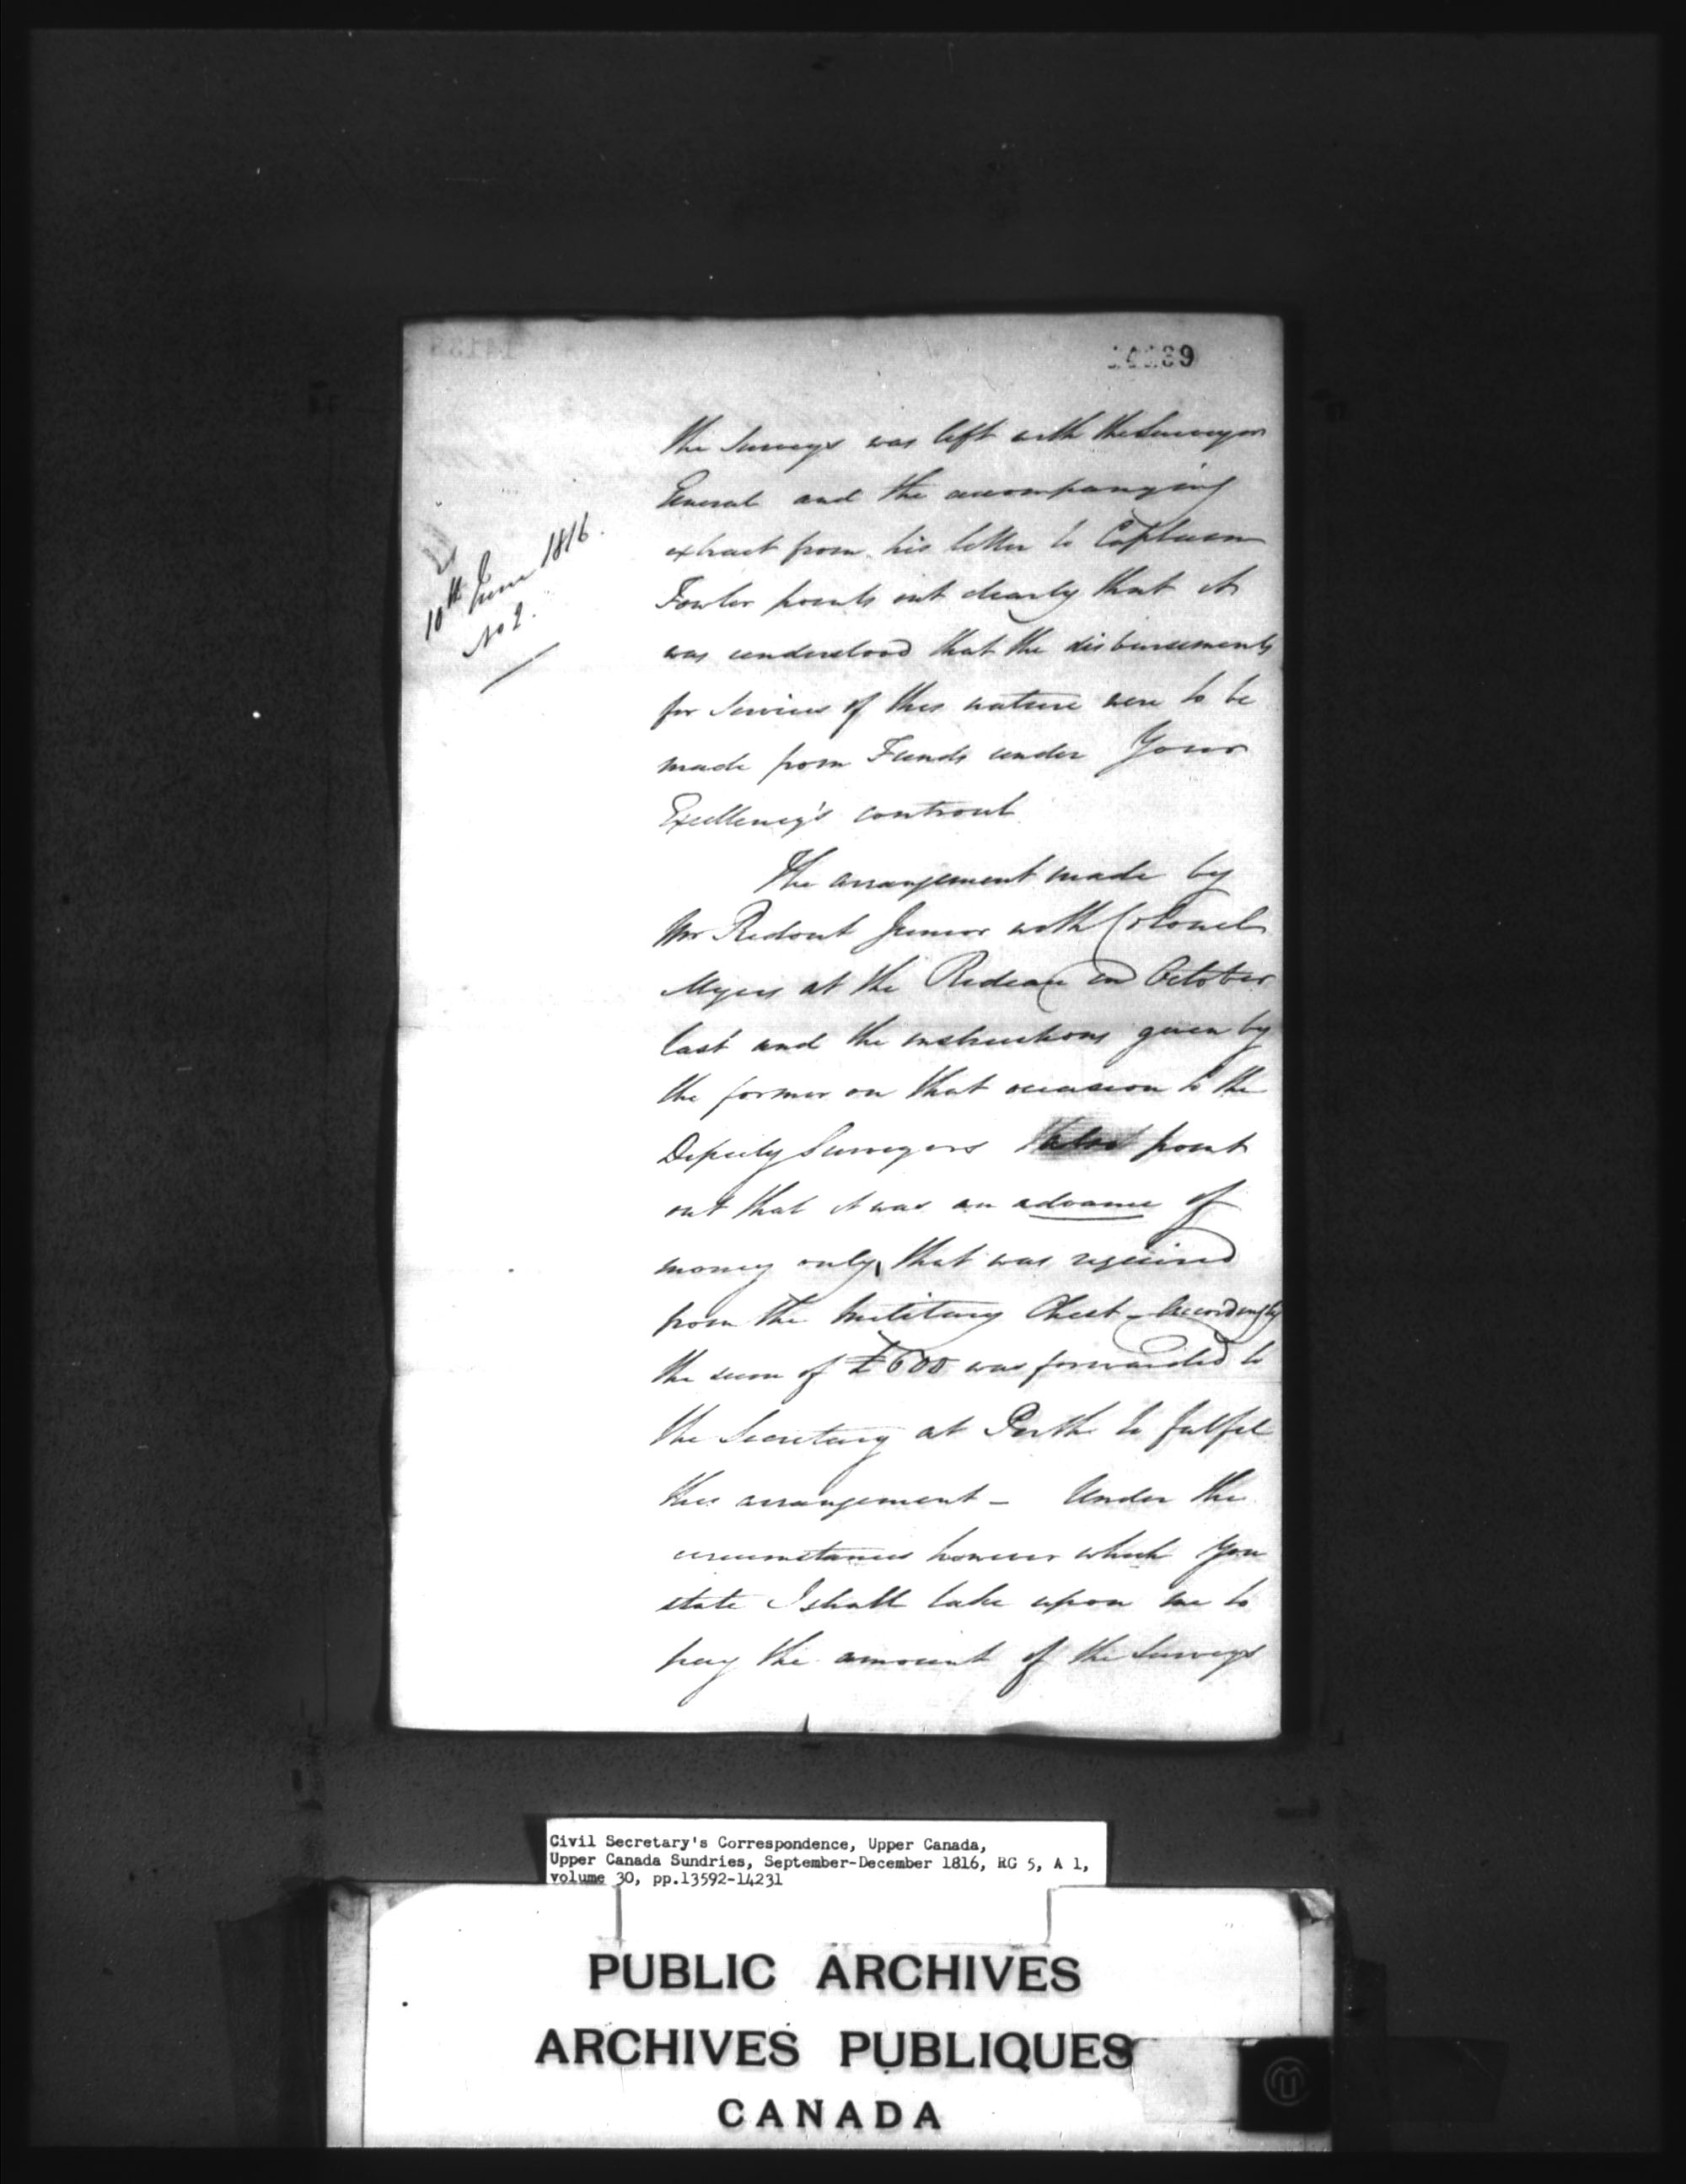 14139
the Surveys was left with the Surveyor
General and the accompanying
extract from his letter to Captain
Fowler points out clearly that it
was understood that the disbursements
for services of this nature were to be
made from Funds under Your
Excellency's controul
10th June 1816.
No 2.
The arrangement made by
Mr Ridout Junior with Colonel
Myers at the Rideau in October
last and the instructions given by
the former on that occasion to the
Deputy Surveyors also point
out that it was an advance of
money only, that was required
from the Military Chest - Accordingly
the sum of £600 was forwarded to
the Secretary at Perth to fulfil
this arrangement - Under the
circumstances however which You
state I shall take upon me to
pay the amount of the Surveys
Civil Secretary's Correspondence, Upper Canada,
Upper Canada Sundries, September-December 1816, RG 5, A 1,
volume 30, pp.13592-14231
PUBLIC ARCHIVES
ARCHIVES PUBLIQUES
CANADA